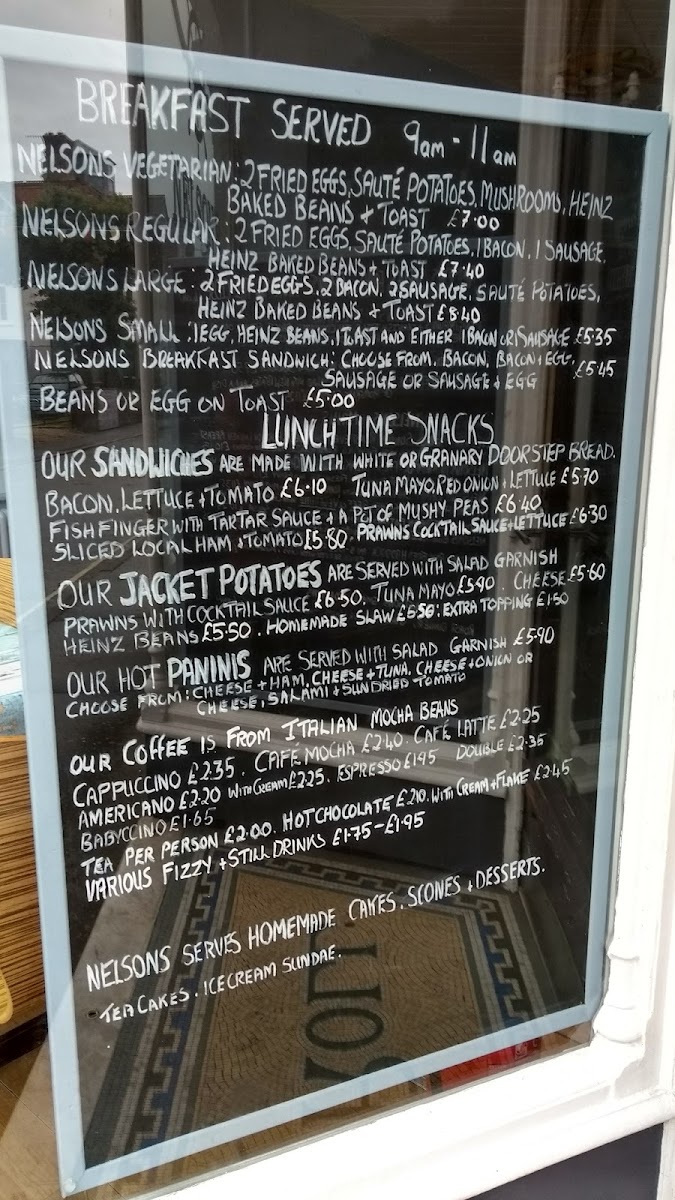 BREAKFAST SERVED 9am - 11am
NELSONS VEGETARIAN: 2 FRIED EGGS, SAUTÉ POTATOES, MUSHROOMS, HEINZ
BAKED BEANS + TOAST £7.00
NELSONS REGULAR: 2 FRIED EGGS, SAUTÉ POTATOES, 1 BACON, 1 SAUSAGE,
HEINZ BAKED BEANS + TOAST £7.40
NELSONS LARGE: 2 FRIED EGGS, 2 BACON, 2 SAUSAGE, SAUTÉ POTATOES,
HEINZ BAKED BEANS + TOAST £8.40
NELSONS SMALL: 1 EGG, HEINZ BEANS, 1 TOAST AND EITHER 1 BACON OR 1 SAUSAGE £5.35
NELSONS BREAKFAST SANDWICH: CHOOSE FROM, BACON, BACON + EGG,
SAUSAGE OR SAUSAGE + EGG £5.45
BEANS OR EGG ON TOAST £5.00
LUNCHTIME SNACKS
OUR SANDWICHES ARE MADE WITH WHITE OR GRANARY DOORSTEP BREAD.
BACON, LETTUCE + TOMATO £6.10 TUNA MAYO, RED ONION + LETTUCE £5.70
FISHFINGER WITH TARTAR SAUCE + A POT OF MUSHY PEAS £6.40
SLICED LOCAL HAM + TOMATO £5.80. PRAWNS COCKTAIL SAUCE + LETTUCE £6.30
OUR JACKET POTATOES ARE SERVED WITH SALAD GARNISH
PRAWNS WITH COCKTAIL SAUCE £6.50, TUNA MAYO £5.90 CHEESE £5.60
HEINZ BEANS £5.50. HOMEMADE SLAW £5.50: EXTRA TOPPING £1.50
OUR HOT PANINIS ARE SERVED WITH SALAD GARNISH £5.90
CHOOSE FROM: CHEESE + HAM, CHEESE + TUNA, CHEESE + ONION OR
CHEESE, SALAMI + SUNDRIED TOMATO
OUR COFFEE IS FROM ITALIAN MOCHA BEANS
CAPPUCCINO £2.35. CAFÉ MOCHA £2.40. CAFÉ LATTE £2.25
AMERICANO £2.20 WITH CREAM £2.25. ESPRESSO £1.95 DOUBLE £2.35
BABYCCINO £1.65
TEA PER PERSON £2.00. HOT CHOCOLATE £2.10. WITH CREAM + FLAKE £2.45
VARIOUS FIZZY + STILL DRINKS £1.75 - £1.95
NELSONS SERVES HOMEMADE CAKES. SCONES + DESSERTS.
TEA CAKES. ICECREAM SUNDAE.